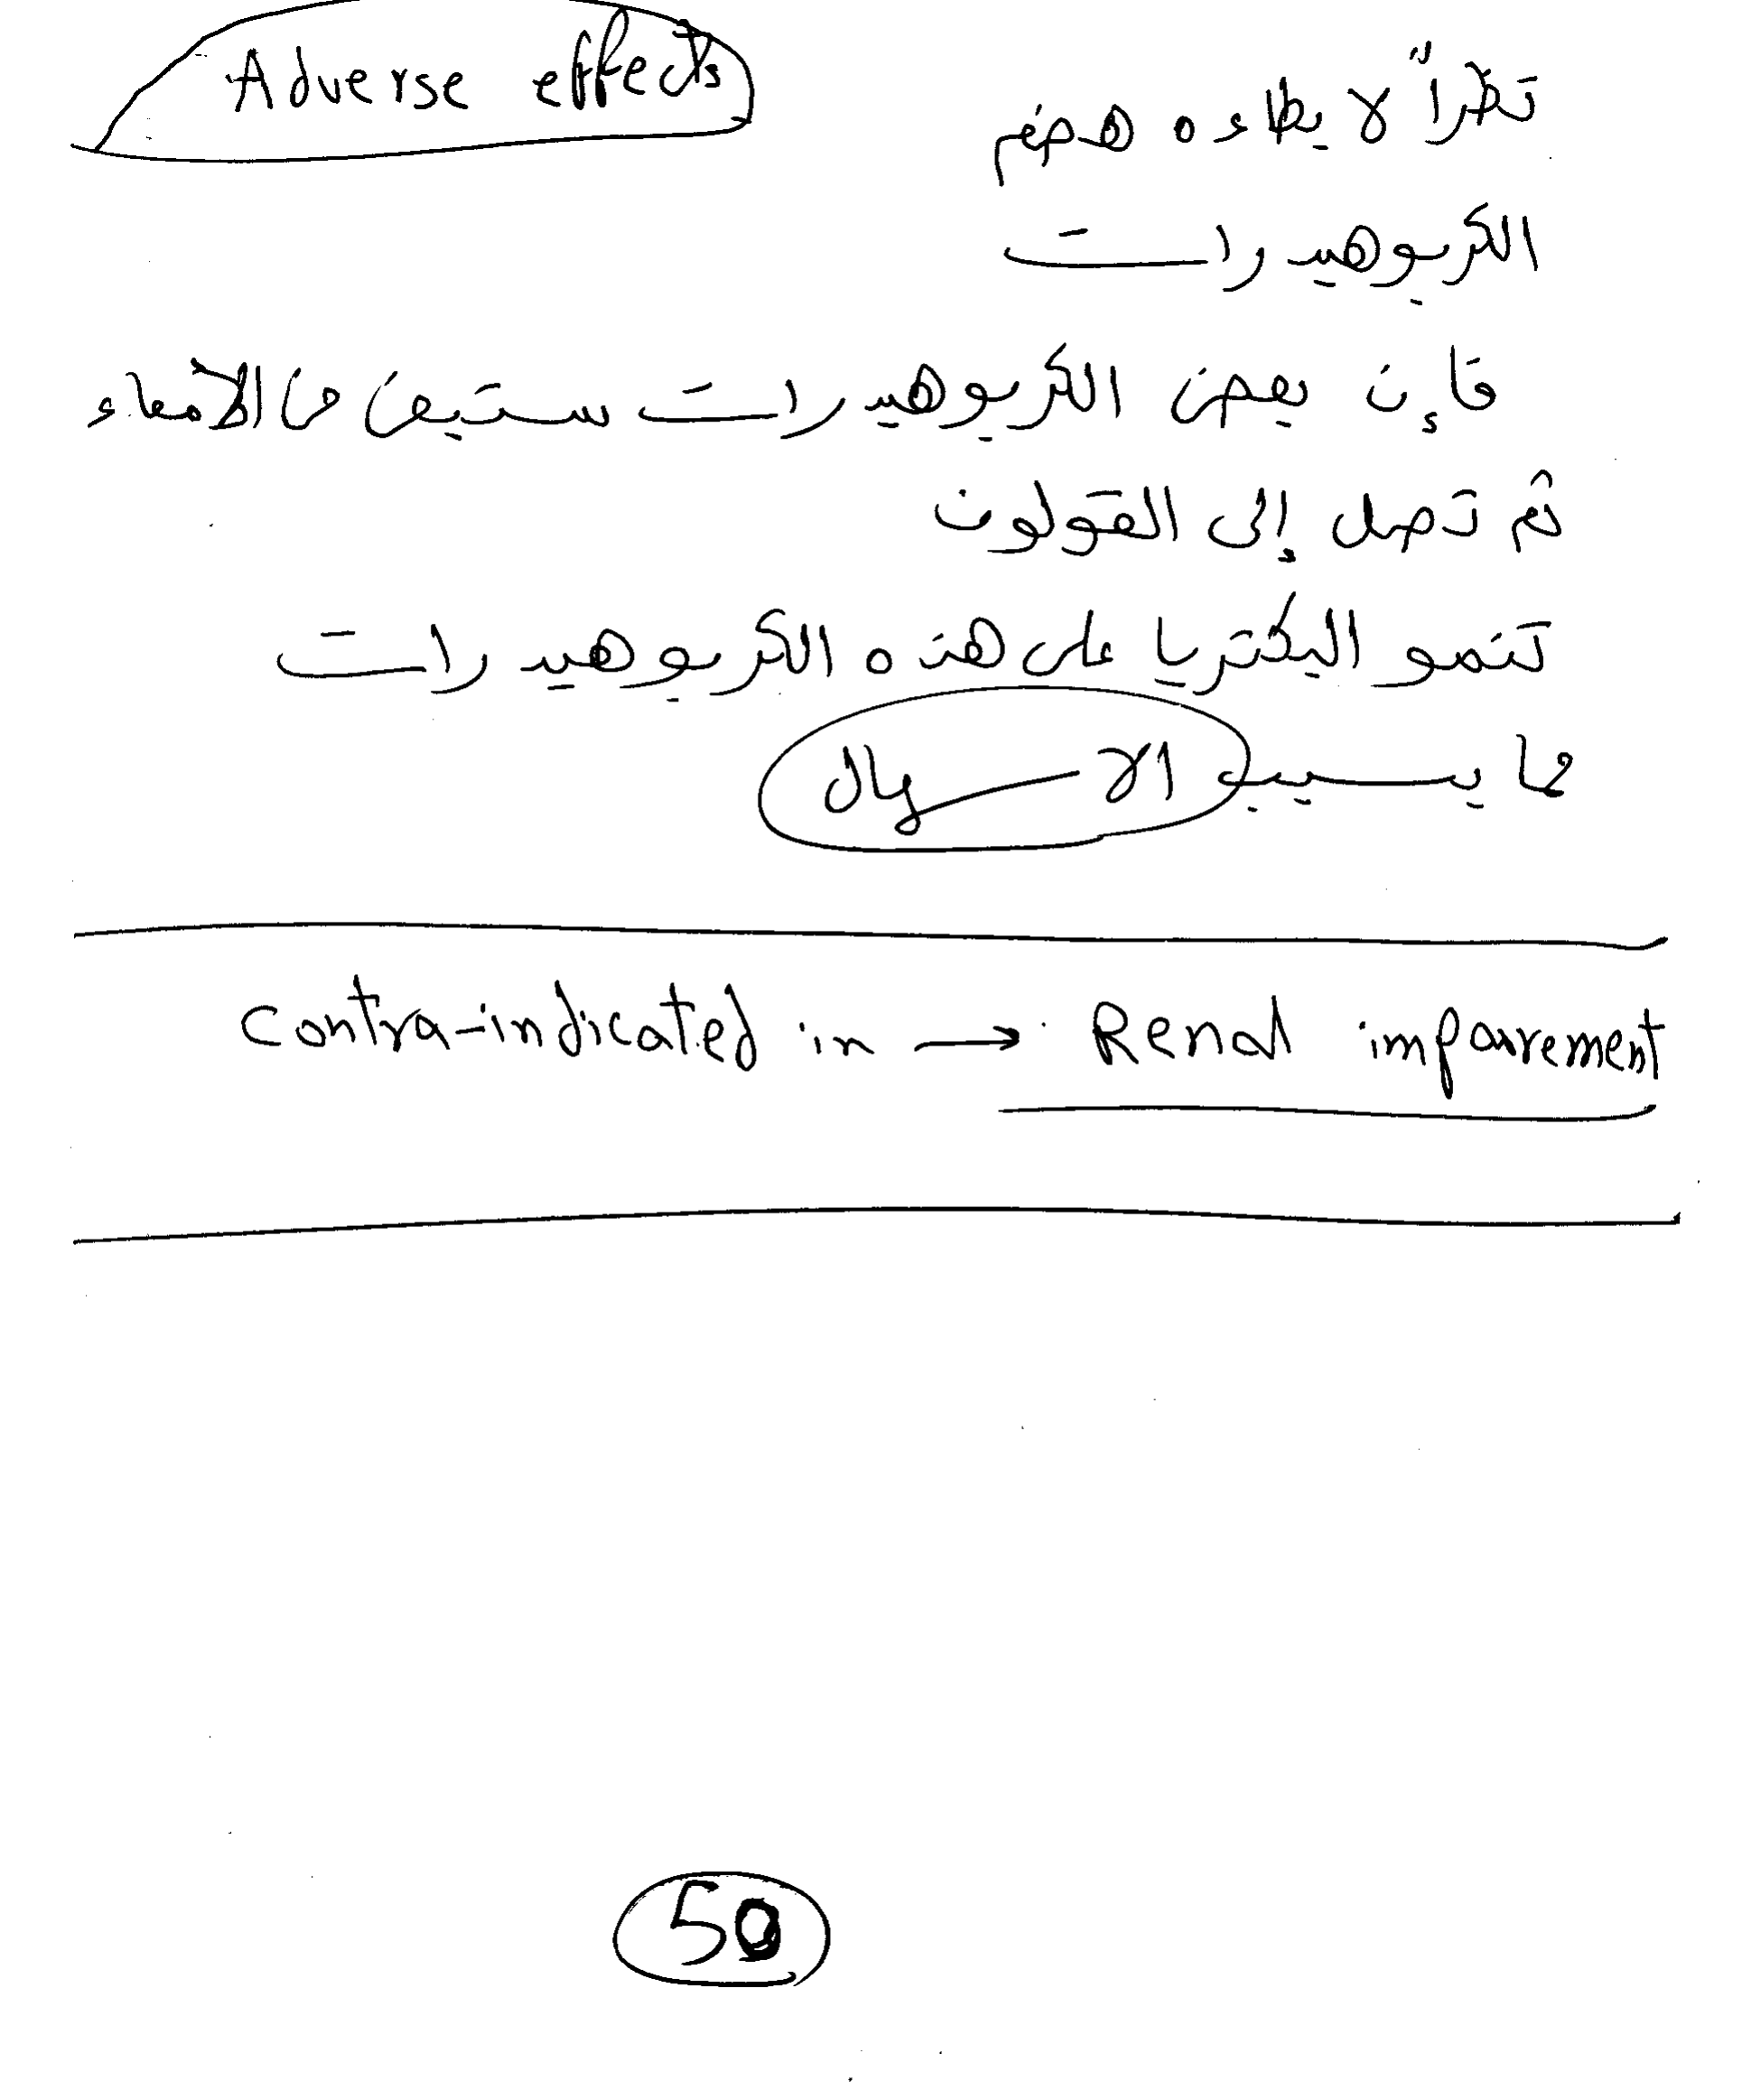 Adverse effects
نظراً لابطاءه هضم
الكربوهيدرات
فإن بعض الكربوهيدرات ستبقى فى الأمعاء
ثم تصل إلى القولون
تنمو البكتريا على هذه الكربوهيدرات
مما يسبب الاسهال
Contra-indicated in → Renal impairement
50